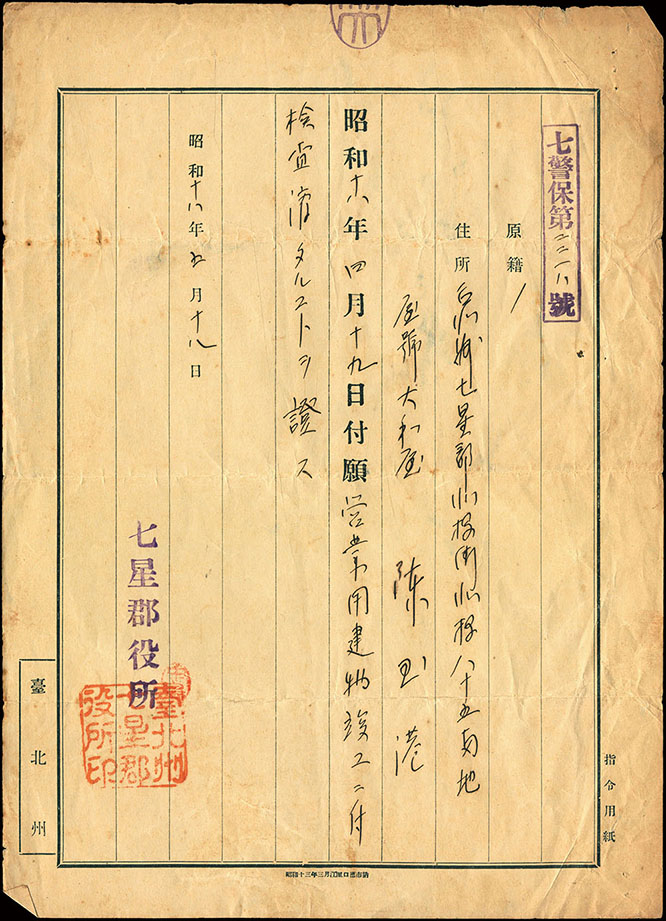 七警保第二二一八號
原籍
住所 台北州七星郡北投街北投八十五番地
屋號大和屋 陳 玉 港
昭和十八年四月十九日付願営業用建物竣工ニ付
検査濟タルコトヲ證ス
昭和十八年五月十八日
七星郡役所
臺北州七星郡役所印
臺北州
指令用紙